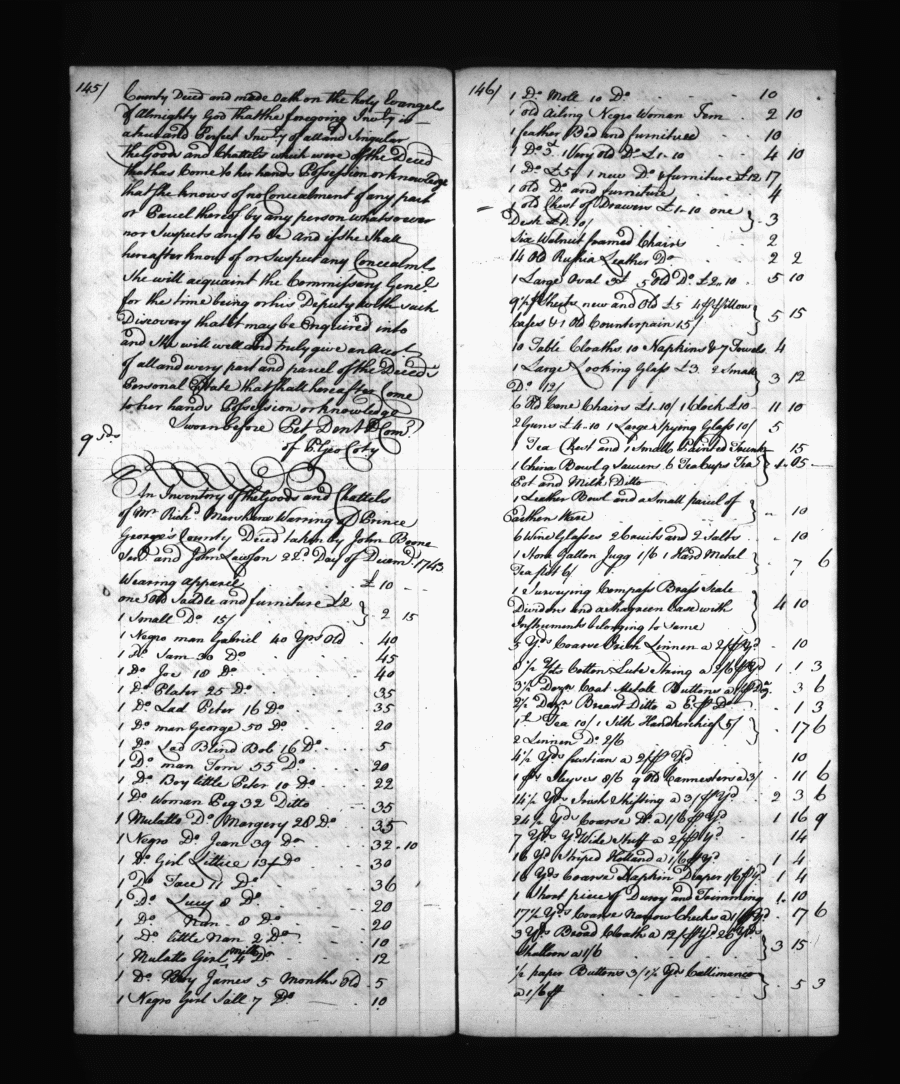 145/
County Deced and made Oath on the holy Evangels
of Almighty God that the foregoing Inv:ty is
a true and Perfect Inv:ty of all and Singular
the Goods and Chattels which were of the Deced
that has Come to her hands Possession or knowledge
that she knows of no Concealment of any part
or Parcel thereof by any person whatsoever
nor Suspects any to be and if she Shall
hereafter know of or Suspect any Concealmts
She will acquaint the Commissary Genel
for the time being or his Deputy with such
Discovery that it may be Enquired into
and She will well and truly give an Acct
of all and every part and parcel of the Deced's
Personal Estate that shall hereafter Come
to her hands Possession or knowledge
Sworn before Pet Dent D Com:y
of P Geo Coty
9 sds
An Inventory of the Goods and Chattels
of Mr Richd Marsham Warring of Prince
George's County Deced taken by John Boone
and John Lawson 22d Day of Decemr 1743
Wearing Apparel £ 10
one Old Saddle and furniture £2
1 Small Do 15/ } 2 15
1 Negro man Gabriel 40 Yrs Old 40
1 Do Sam 30 Do 45
1 Do Joe 18 Do 40
1 Do Plater 25 Do 35
1 Do Lad Peter 16 Do 35
1 Do man George 50 Do 20
1 Do Lad Blind Bob 16 Do 5
1 Do man Tom 55 Do 20
1 Do Boy little Peter 10 Do 22
1 Do Woman Peg 32 Ditto 35
1 Mulatto Do Margery 28 Do 35
1 Negro Do Jean 39 Do 32 10
1 Do Girl Lettice 13 Do 30
1 Do 11 Do 36
1 Do Lucy 8 Do 20
1 Do Nan 8 Do 20
1 Do little Nan 2 Do 10
1 Mulatto Girl 12
1 Do Boy James 5 Months Old 5
1 Negro Girl Sall 7 Do 10
146/
1 Do Moll 10 Do 10
1 old Ailing Negro Woman Fem 2 10
1 feather Bed and furniture 10
1 Very old Do £1-10 4 10
1 Do £5 & 1 new Do & furniture £12 17
1 old Do and furniture 4
1 old Chest of Drawers £1-10 one
Desk £1-10/ } 3
Six Walnut framed Chairs 2
14 Old Rushia Leather Do 2 2
1 Large Oval 5 Old Do £2-10 5 10
9 pr Sheets new and Old £5 4 pr Pillow
Cases & 1 Old Counterpain 15/ } 5 15
10 Table Cloaths 10 Napkins & 7 Towels 4
1 Large Looking Glass £3. 2 Small
Do 12/ } 3 12
6 Old Cane Chairs £1-10/ 1 Clock £10 11 10
2 Guns £4-10 1 Large Spying Glass 10/ 5
1 Tea Chest and 1 Small Painted Trunk 15
1 China Bowl 9 Saucers 6 Tea Cups Tea
Pot and Milk Ditto } 1 05
1 Leather Bowl and a Small parcel of
Earthen Ware } 10
6 Wine Glasses 2 Cruits and 2 Salts 10
1 Stone Gallon Jugg 1/6 1 Hard Mettal
Tea pot 6/ } 7 6
1 Surveying Compass Brass Scale
Dividers and a Shagreen Case with
Instruments belonging to Same } 4 10
5 Yds Coarse Irish Linnen a 2/ pr Yd 10
8½ Yds Cotton Lute String a 2/6 pr Yd 1 1 3
3½ Dozn Coat Metale Buttons a 1/ pr Dozn 3 6
2½ Dozn Breast Ditto a 6 pr Do 1 3
1 lb Tea 10/ 1 Silk Handkerchief 5/
2 Linnen Do 2/6 } 17 6
4½ Yds fustian a 2/ pr Yd 10
1 pr Sleyes 8/6 9 old Cannesters a 3/ 11 6
14½ Yds Irish Shifting a 3/ pr Yd 2 3 6
24½ Yds Coarse Do a 1/6 pr Yd 1 16 9
7 Yds Yd Wide Stuff a 2/ pr Yd 14
16 Yds Striped Holland a 1/6 pr Yd 1 4
16 Yds Coarse Napkin Diaper 1/6 pr Yd 1 4
1 Short piece of Duroy and Trimming 1 10
17½ Yds Coarse Narrow Checks a 1/ pr Yd 17 6
3 Yds Broad Cloath a 12/ pr Yd 26 Yds
Shalloon a 1/6 } 3 15
½ paper Buttons 3/ 1½ Yds Callimanco
a 1/6 pr } 5 3